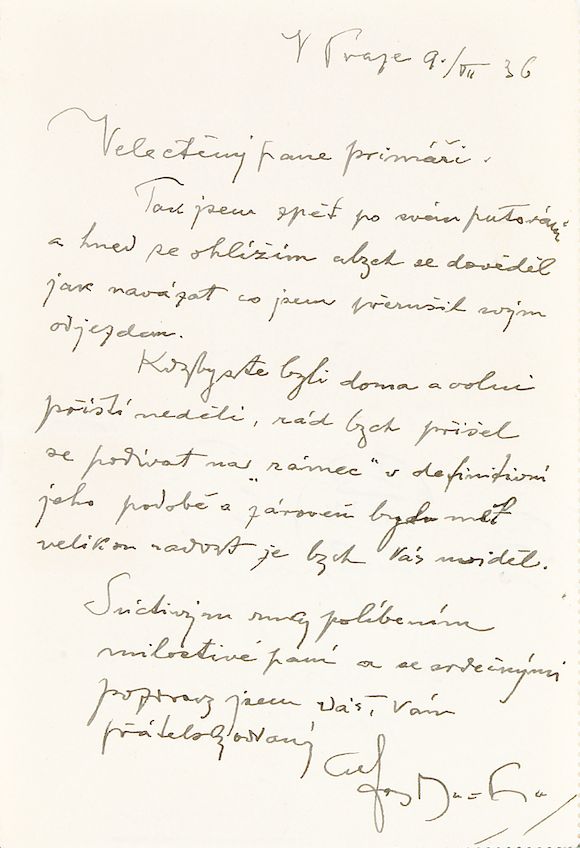 V Praze 9./VII 36
Velectěný pane primáři.
Tak jsem zpět po svém putování
a hned se ohlížím abych se dověděl
jak navázat co jsem přerušil svým
odjezdem.
Kdybyste byli doma a volni
příští neděli, rád bych přišel
se podívat na "rámec" v definitivní
jeho podobě a zároveň bych měl
velikou radost že bych Vás uviděl.
S uctivým ruky políbením
milostivé paní a se srdečnými
pozdravy jsem Váš, Vám
přátelsky oddaný